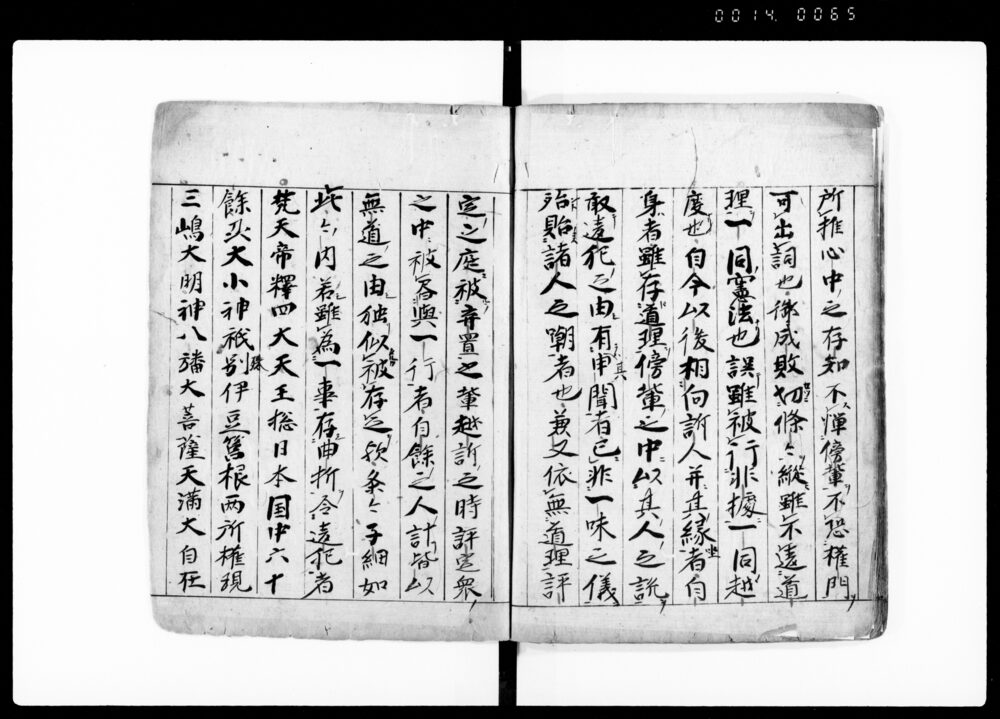 0014 0065
所推心中之存知不憚傍輩不恐権門
可出詞也御成敗切條々縦雖不違道
理一同憲法也誤雖被行非據一同越
度也自今以後相向訴人并其縁者自
身者雖存道理傍輩之中以其人之説
敢違犯之由有申聞者已非一味之儀
殆貽諸人之嘲者也兼又依無道理評
定之庭被弃置之輩越訴之時評定衆
之中被書與一行者自餘之人計皆以
無道之由独似被存之歟条々子細如
此々内若雖為一事存曲折令違犯者
梵天帝釋四大天王惣日本国中六十
餘州大小神祇別伊豆筥根両所権現
三嶋大明神八幡大菩薩天満大自在